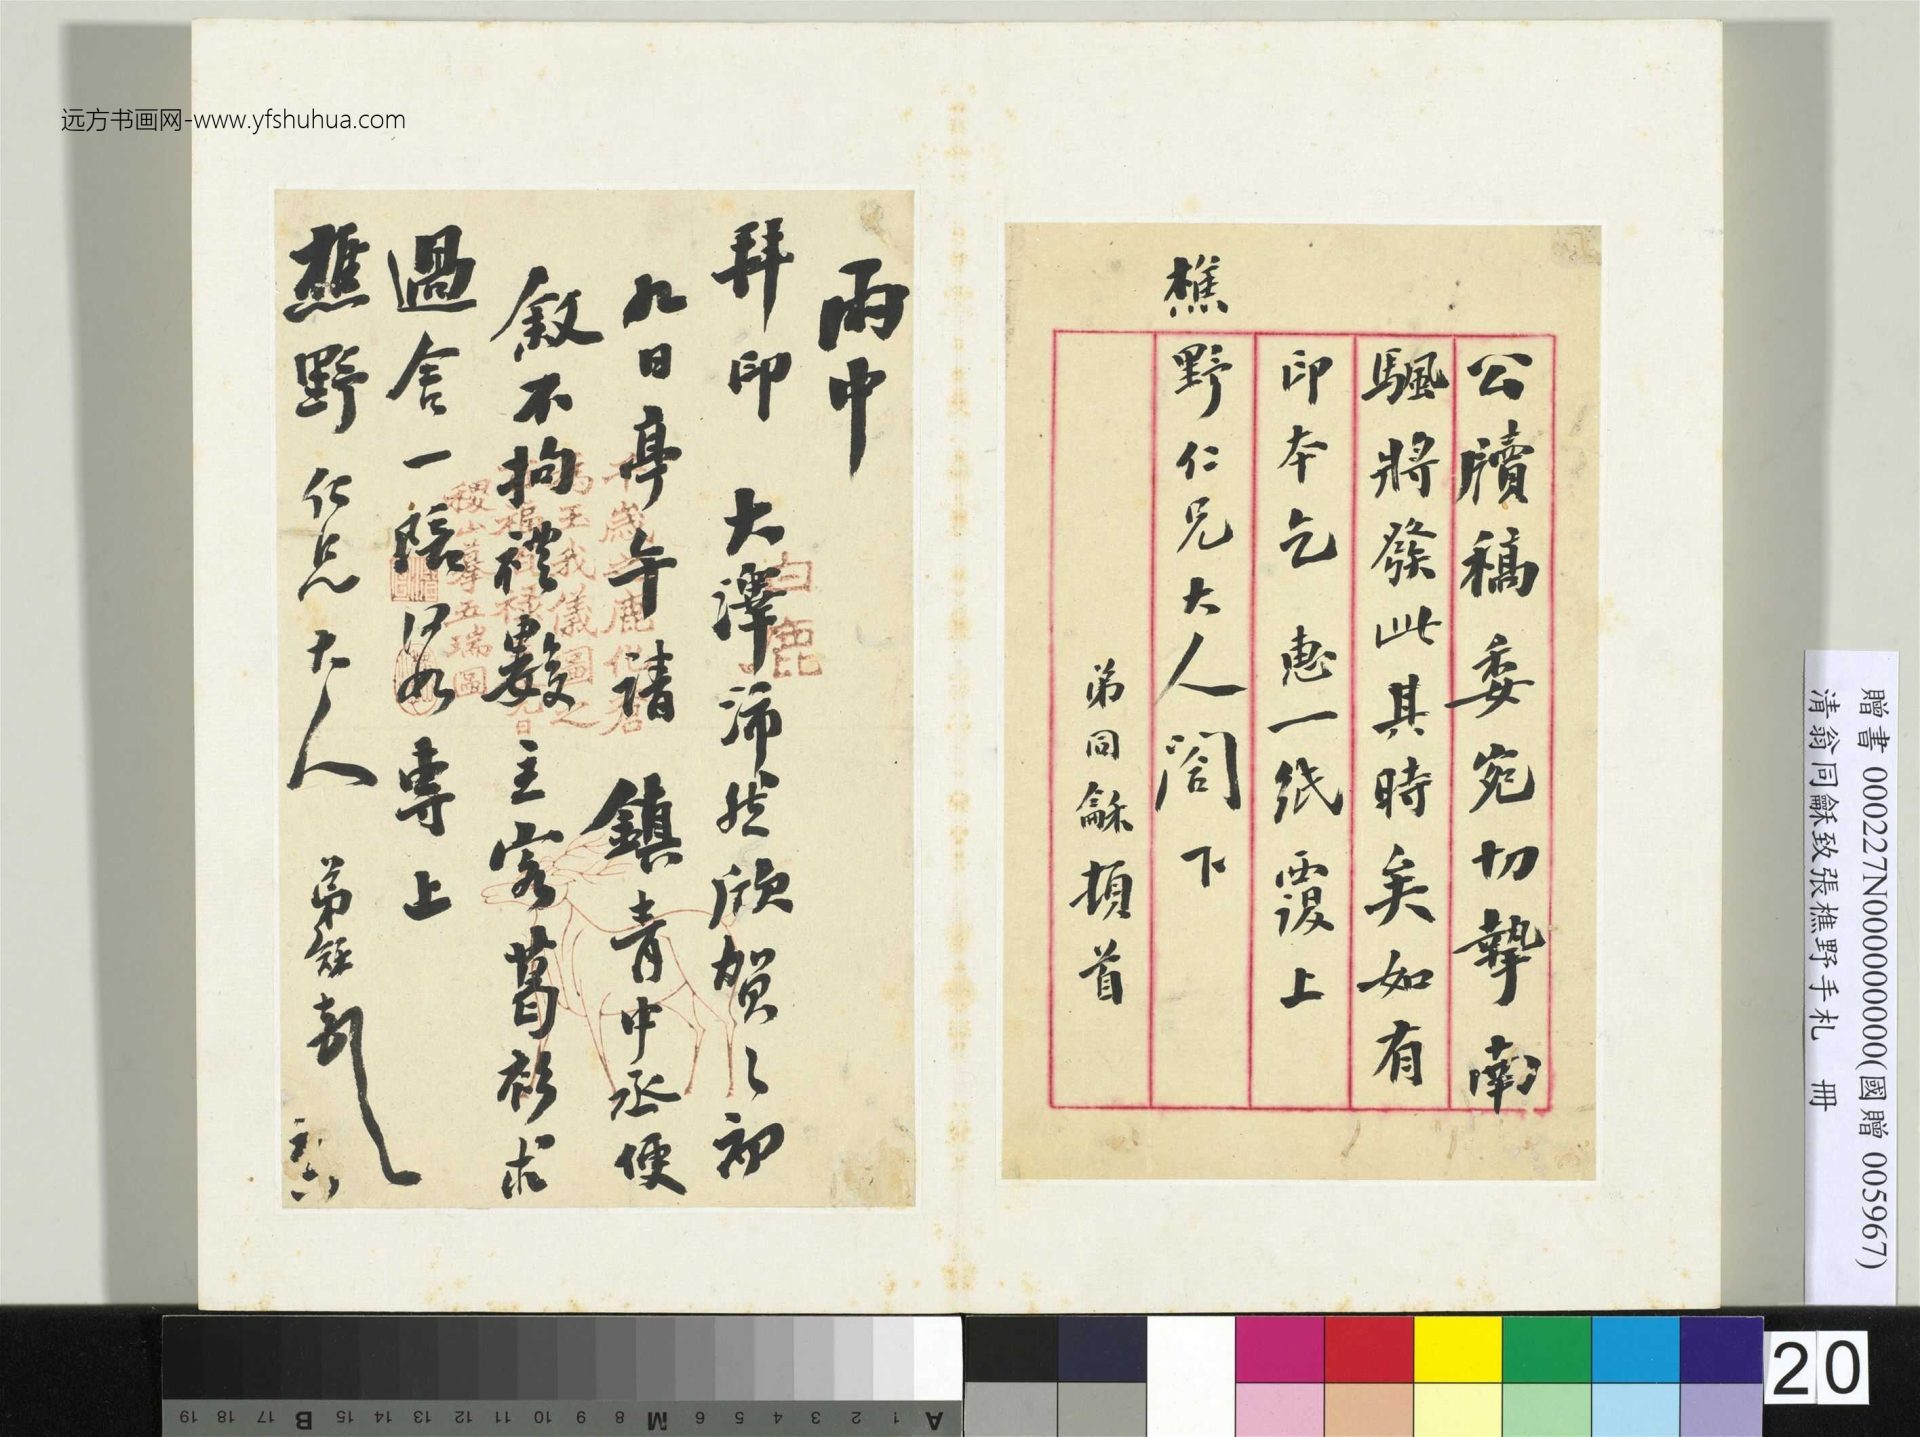 远方书画网-www.yfshuhua.com
公牘稿委宛切摯南
颿將發此其時矣如有
印本乞 惠一紙覆上
樵野仁兄大人閣下
弟同龢頓首
雨中
拜印 大澤沛然欣賀〻初
九日亭午請 鎮青中丞便
敘不拘禮數主客葛衫求
過舍一 專上
樵野仁兄大人 弟龢
白鹿
贈書 000227N000000000(國贈 005967)
清翁同龢致張樵野手札 冊
20
A 1 2 3 4 5 6 M 8 9 10 11 12 13 14 15 B 17 18 19